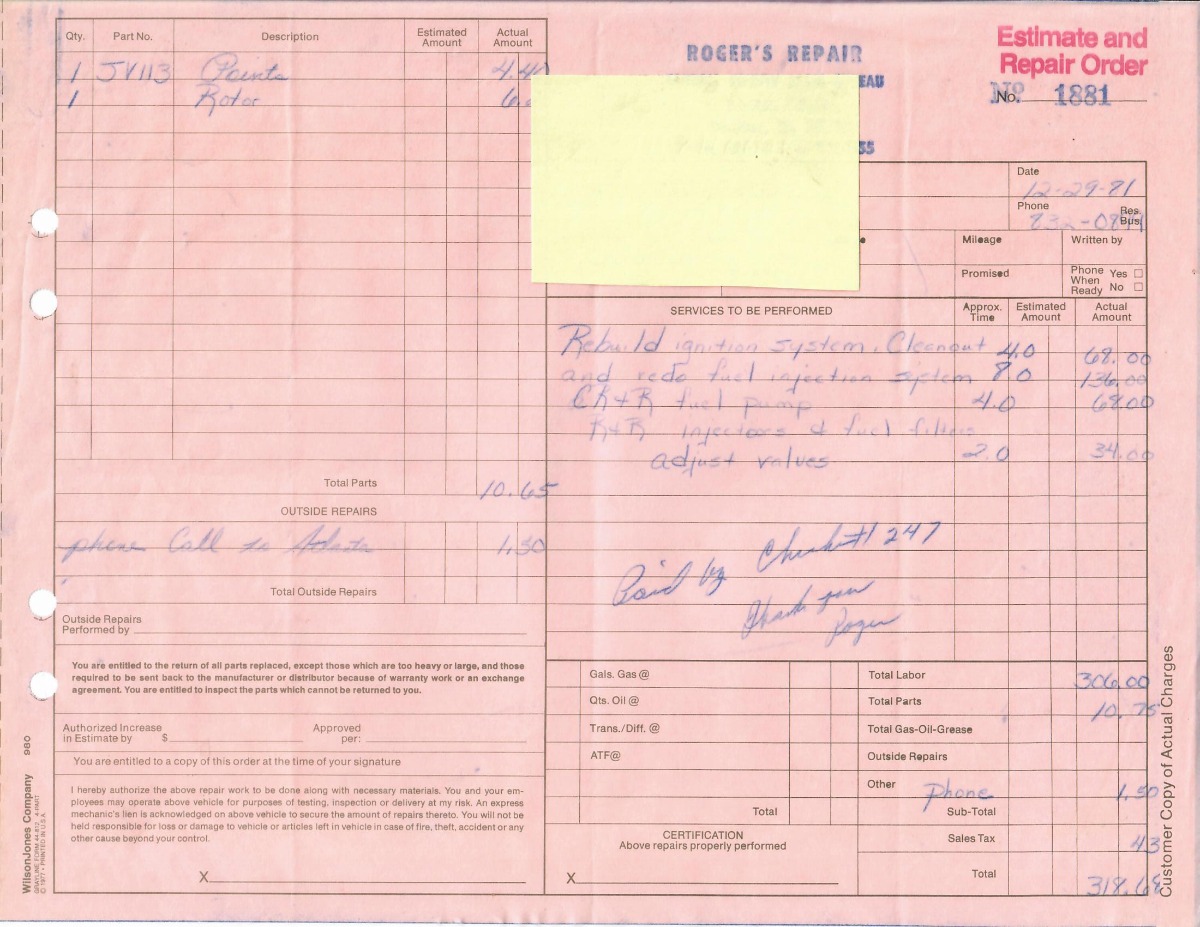 Qty. Part No. Description Estimated Amount Actual Amount
1 JV113 Points 4.40
1 Rotor 6.
Total Parts 10.65
OUTSIDE REPAIRS
phone Call to 1.50
Total Outside Repairs
Outside Repairs
Performed by
You are entitled to the return of all parts replaced, except those which are too heavy or large, and those
required to be sent back to the manufacturer or distributor because of warranty work or an exchange
agreement. You are entitled to inspect the parts which cannot be returned to you.
Authorized Increase
in Estimate by $
Approved
per:
You are entitled to a copy of this order at the time of your signature
I hereby authorize the above repair work to be done along with necessary materials. You and your em-
ployees may operate above vehicle for purposes of testing, inspection or delivery at my risk. An express
mechanic's lien is acknowledged on above vehicle to secure the amount of repairs thereto. You will not be
held responsible for loss or damage to vehicle or articles left in vehicle in case of fire, theft, accident or any
other cause beyond your control.
X
WilsonJones Company 980
GRAYLINE FORM 44-812 4-PART
© 1977 • PRINTED IN U.S.A.
ROGER'S REPAIR
EAU
55
Estimate and
Repair Order
No. No. 1881
Date
12-29-81
Phone Res.
Bus.
Mileage Written by
Promised Phone When Ready Yes No
SERVICES TO BE PERFORMED Approx. Time Estimated Amount Actual Amount
Rebuild ignition system. Cleanout 4.0 68.00
and redo fuel injection system 8.0 136.00
CK+R fuel pump 4.0 68.00
R+R injectors & fuel filters
adjust valves 2.0 34.00
Paid by Check #1247
Thank you
Roger
Gals. Gas @
Qts. Oil @
Trans./Diff. @
ATF@
Total
CERTIFICATION
Above repairs properly performed
X
Total Labor 306.00
Total Parts 10.75
Total Gas-Oil-Grease
Outside Repairs
Other Phone 1.50
Sub-Total
Sales Tax 43
Total 318.68
Customer Copy of Actual Charges